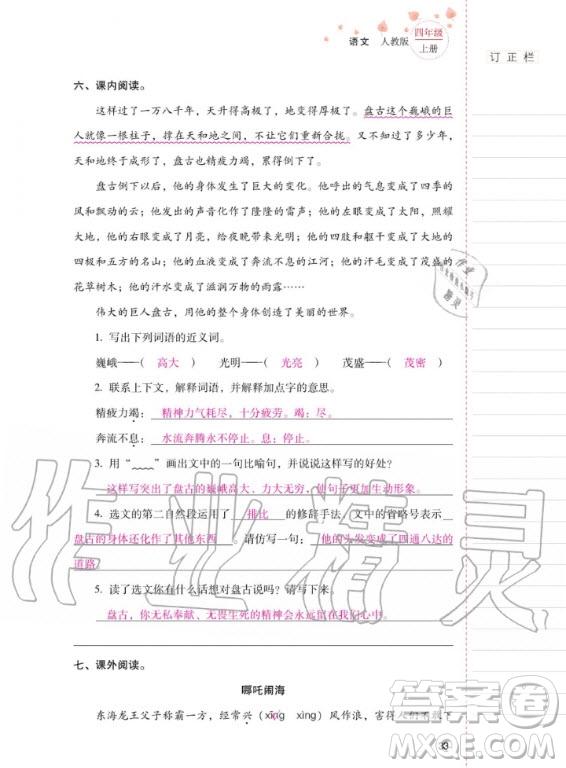 语文 人教版 四年级
上册
订正栏
六、课内阅读。
这样过了一万八千年，天升得高极了，地变得厚极了。盘古这个巍峨的巨
人就像一根柱子，撑在天和地之间，不让它们重新合拢。又过了多少年，
天和地终于成形了，盘古也精疲力竭，累得倒下了。
盘古倒下以后，他的身体发生了巨大的变化。他呼出的气息变成了四季的
风和飘动的云；他发出的声音化作了隆隆的雷声；他的左眼变成了太阳，照耀
大地，他的右眼变成了月亮，给夜晚带来光明；他的四肢和躯干变成了大地的
四极和五方的名山；他的血液变成了奔流不息的江河；他的汗毛变成了茂盛的
花草树木；他的汗水变成了滋润万物的雨露……
伟大的巨人盘古，用他的整个身体创造了美丽的世界。
1. 写出下列词语的近义词。
巍峨——（ 高大 ） 光明——（ 光亮 ） 茂盛——（ 茂密 ）
2. 联系上下文，解释词语，并解释加点字的意思。
精疲力竭：精神力气耗尽，十分疲劳。竭：尽。
奔流不息：水流奔腾永不停止。息：停止。
3. 用“﹏﹏”画出文中的一句比喻句，并说说这样写的好处？
这样写突出了盘古的巍峨高大、力大无穷，使句子更加生动形象。
4. 选文的第二自然段运用了 排比 的修辞手法，文中的省略号表示
盘古的身体还化作了其他东西 。请仿写一句：他的头发变成了四通八达的
道路。
5. 读了选文你有什么话想对盘古说吗？请写下来。
盘古，你无私奉献、无畏生死的精神会永远留在我们心中。
七、课外阅读。
哪吒闹海
东海龙王父子称霸一方，经常兴（xīng xìng）风作浪，害得人们不敢下
33
作业精灵
答案圈